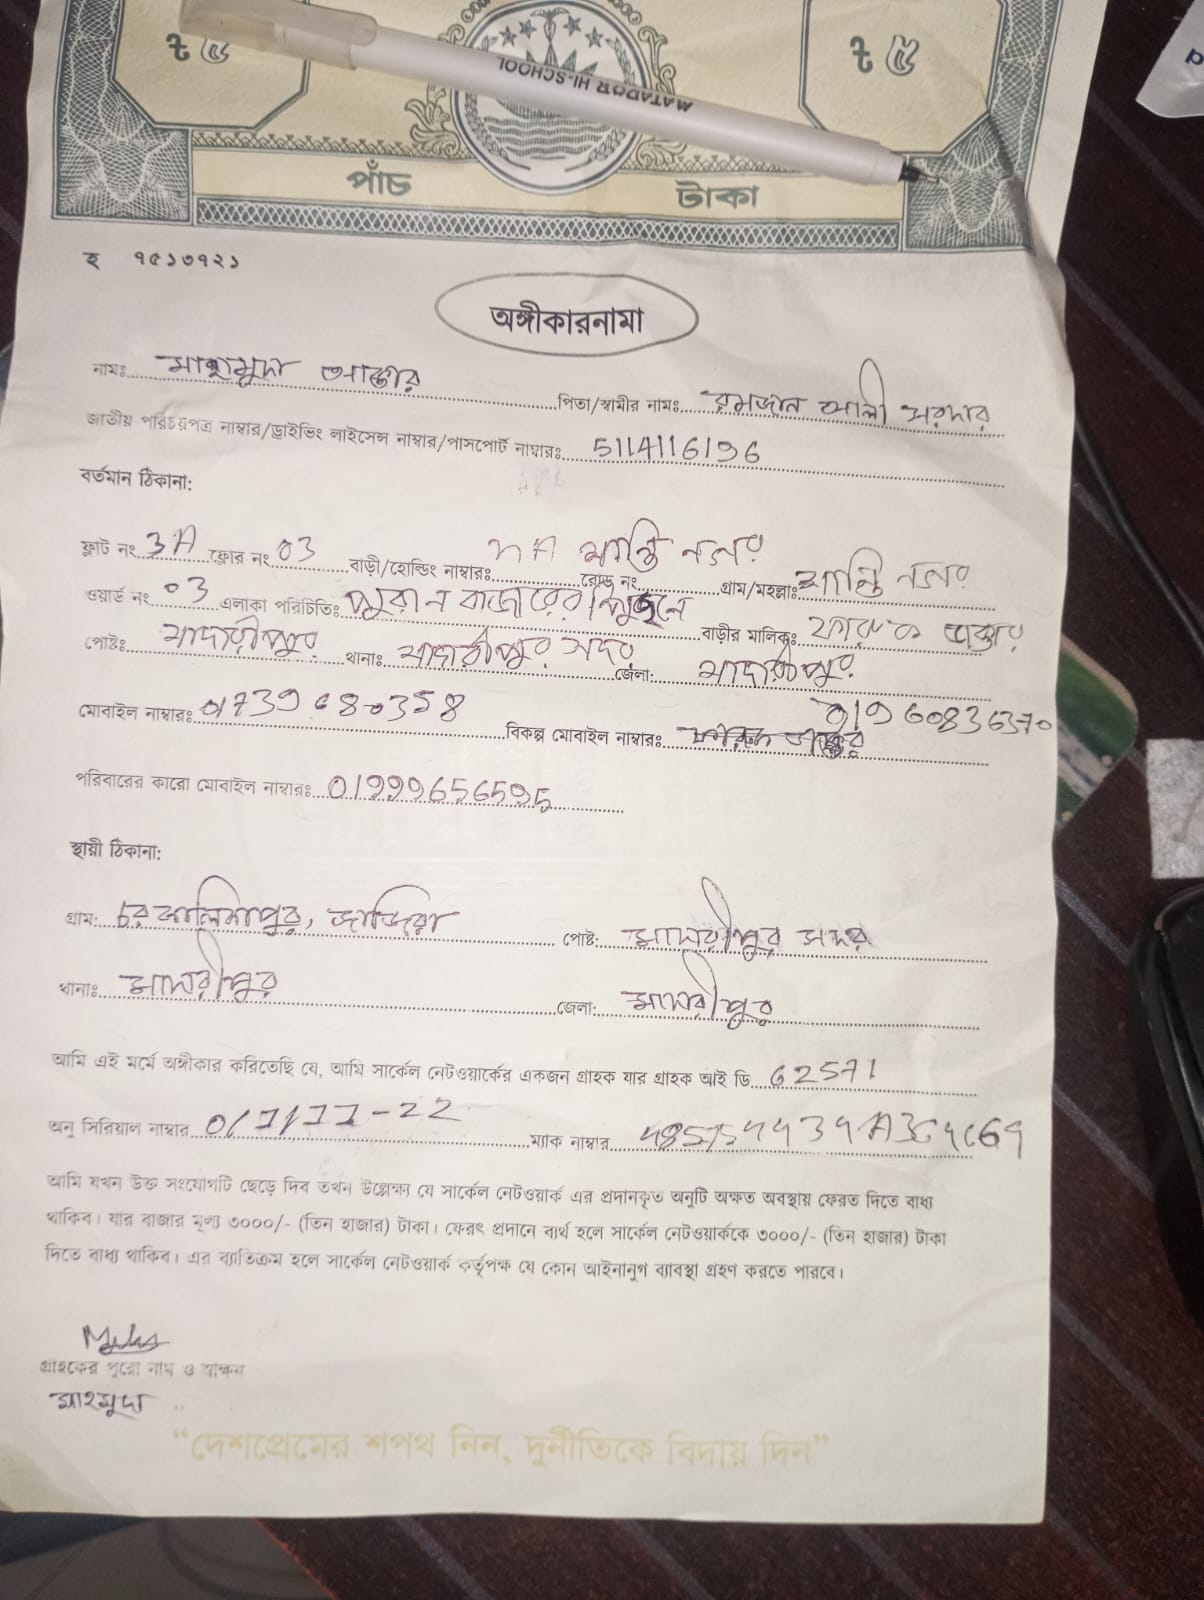 ৳ ৫ ৳ ৫
MATADOR HI-SCHOOL
পাঁচ টাকা
হ ৭৫১৩৭২১
অঙ্গীকারনামা
নামঃ মাহমুদা আক্তার পিতা/স্বামীর নামঃ রমজান আলী সরদার
জাতীয় পরিচয়পত্র নাম্বার/ড্রাইভিং লাইসেন্স নাম্বার/পাসপোর্ট নাম্বারঃ 5114116196
বর্তমান ঠিকানা:
ফ্লাট নং 3A ফ্লোর নং 03 বাড়ী/হোল্ডিং নাম্বারঃ রোড নং গ্রাম/মহল্লাঃ
ওয়ার্ড নং 03 এলাকা পরিচিতিঃ পুরান বাজারের বাড়ীর মালিকঃ
পোষ্টঃ মাদারীপুর থানাঃ মাদারীপুর সদর জেলা: মাদারীপুর
মোবাইল নাম্বারঃ 01739680358 বিকল্প মোবাইল নাম্বারঃ 01960836370
পরিবারের কারো মোবাইল নাম্বারঃ 01999656595
স্থায়ী ঠিকানা:
গ্রাম: চর কালিকাপুর, জাজিরা পোষ্ট: মাদারীপুর সদর
থানাঃ মাদারীপুর জেলা: মাদারীপুর
আমি এই মর্মে অঙ্গীকার করিতেছি যে, আমি সার্কেল নেটওয়ার্কের একজন গ্রাহক যার গ্রাহক আই ডি 62571
অনু সিরিয়াল নাম্বার 0/1/11-22 ম্যাক নাম্বার
আমি যখন উক্ত সংযোগটি ছেড়ে দিব তখন উল্লেক্ষ্য যে সার্কেল নেটওয়ার্ক এর প্রদানকৃত অনুটি অক্ষত অবস্থায় ফেরত দিতে বাধ্য
থাকিব। যার বাজার মূল্য ৩০০০/- (তিন হাজার) টাকা। ফেরৎ প্রদানে ব্যর্থ হলে সার্কেল নেটওয়ার্ককে ৩০০০/- (তিন হাজার) টাকা
দিতে বাধ্য থাকিব। এর ব্যাতিক্রম হলে সার্কেল নেটওয়ার্ক কর্তৃপক্ষ যে কোন আইনানুগ ব্যাবস্থা গ্রহণ করতে পারবে।
গ্রাহকের পুরো নাম ও স্বাক্ষর
মাহমুদা
“দেশপ্রেমের শপথ নিন, দুর্নীতিকে বিদায় দিন”